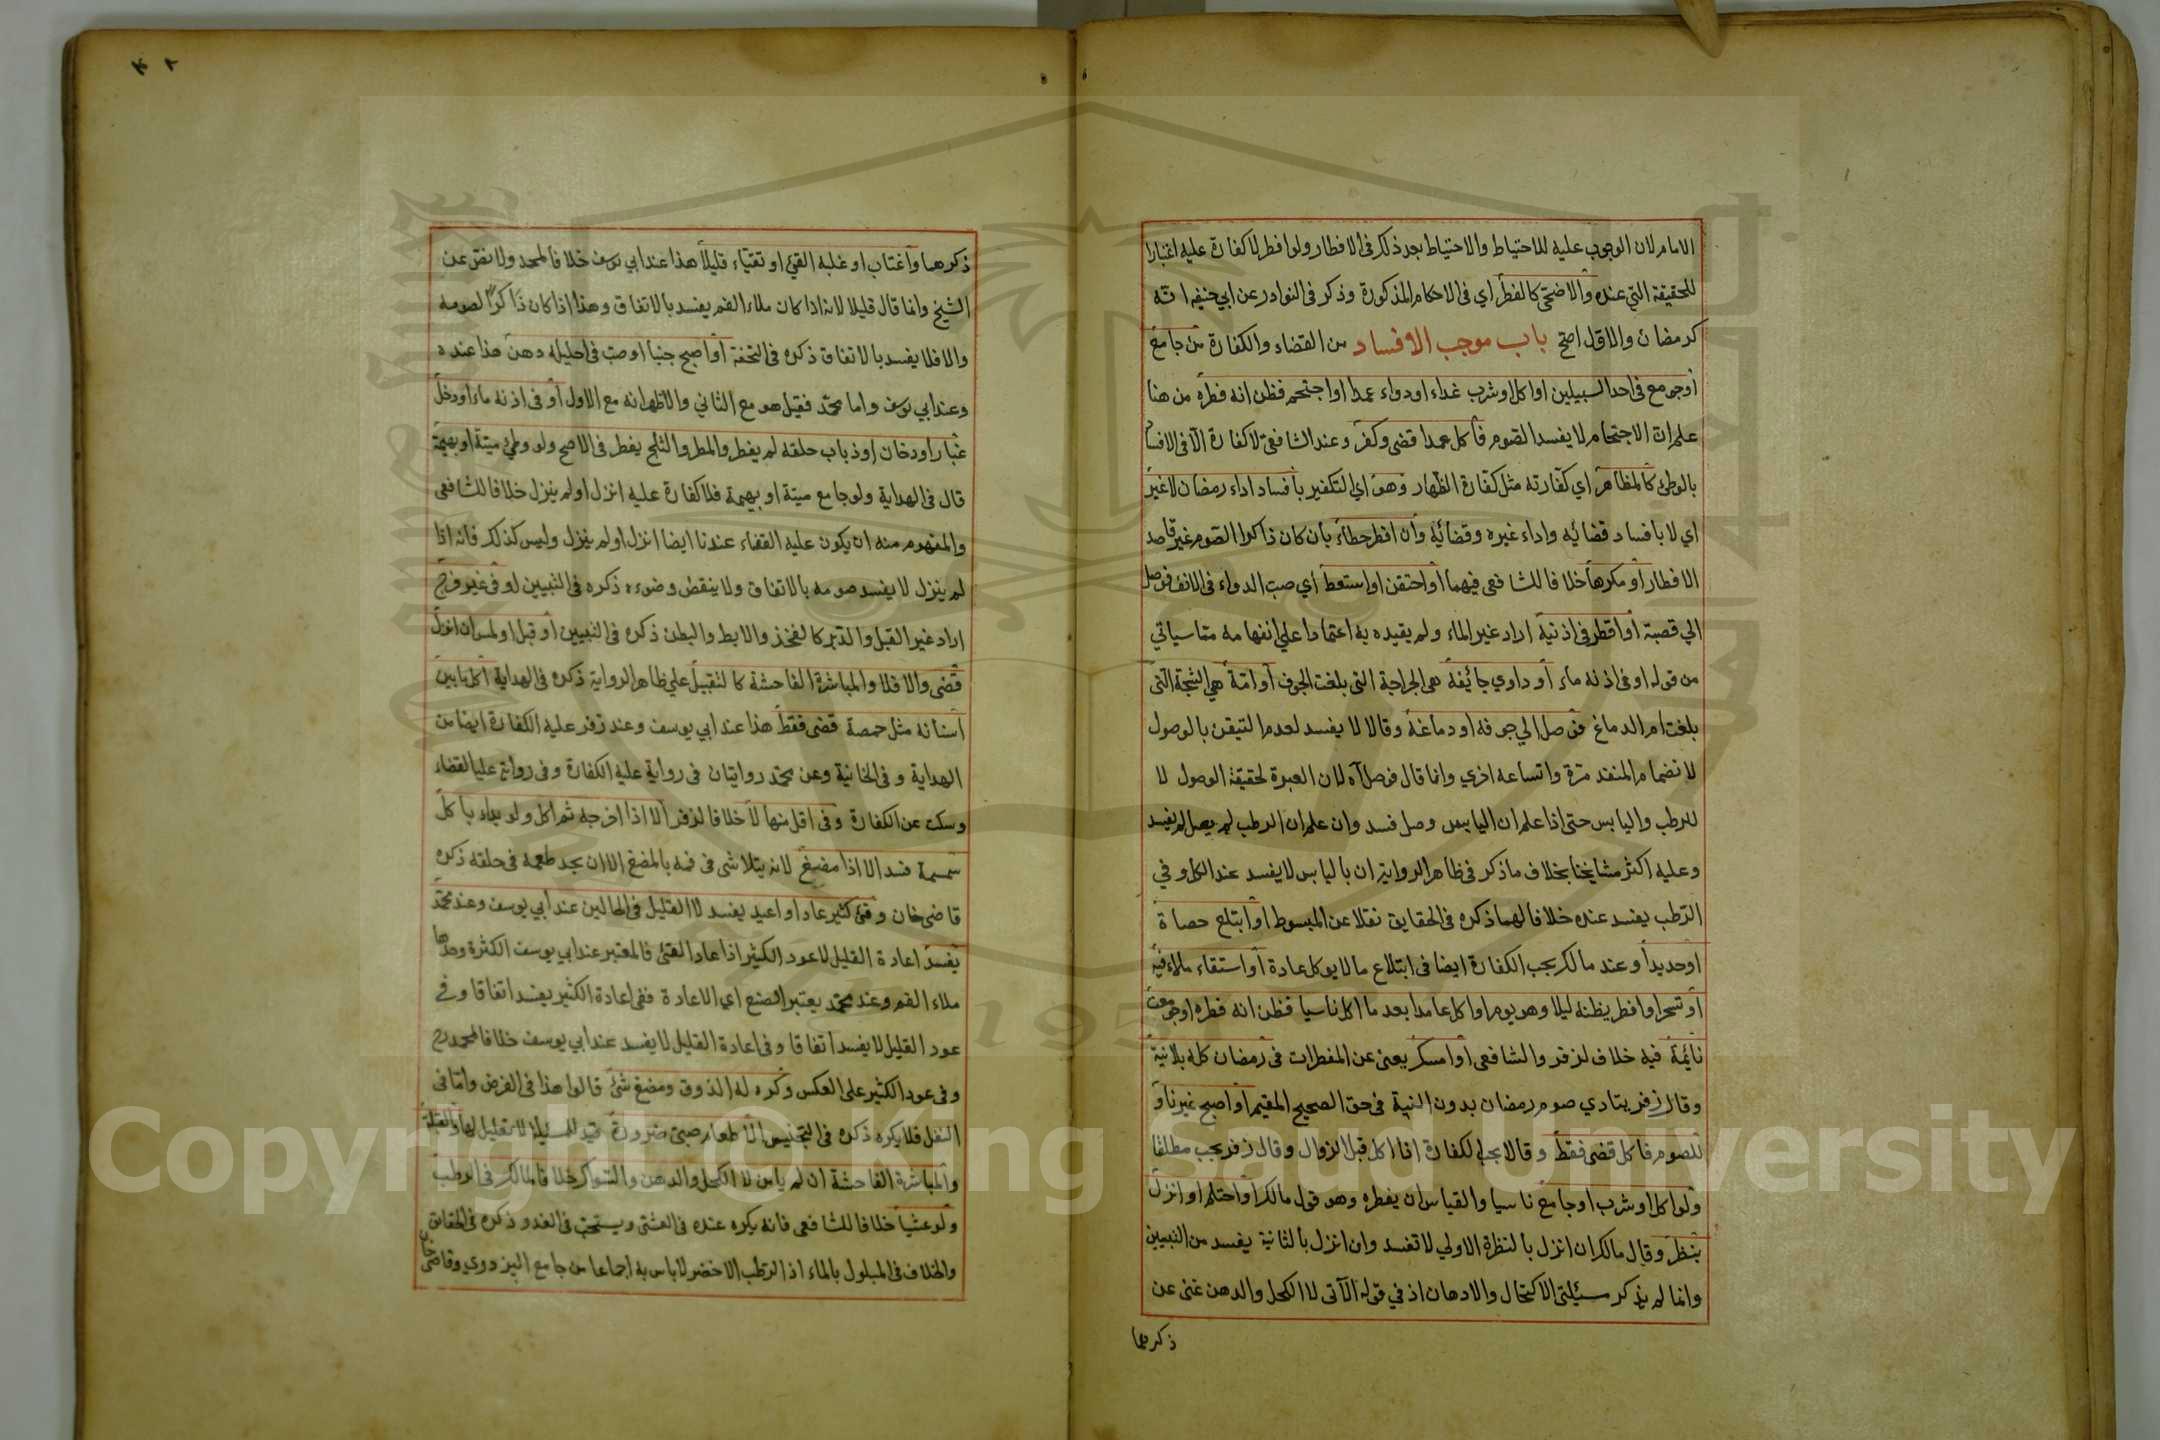 الامام لان الوجوب عليه للاحتياط والاحتياط بعد ذلك في الافطار ولو افطر لا كفارة عليه اعتبارا
للحقيقة التي عنده والاضحى كالفطر اي في الاحكام المذكورة وذكر في النوادر عن ابي حنيفه انه
كرمضان والاول اصح باب موجب الافساد من القضاء والكفارة من جامع
اوجومع في احد السبيلين او اكل او شرب غداء او دواء عمدا او احتجم فظن انه فطره من هنا
علم ان الاحتجام لا يفسد الصوم فاكل عمدا قضى وكفر وعند الشافعي لا كفارة الا في الافساد
بالوطئ كالمظاهر اي كفارته مثل كفارة الظهار وهو اي التكفير بافساد اداء رمضان لا غير
اي لا بافساد قضائه واداء غيره وقضائه وان افطر خطاء بان كان ذاكرا الصوم غير قاصد
الافطار او مكرها خلافا للشافعي فيهما او احتقن او استعط اي صب الدواء في الانف فوصل
الي قصبة او اقطر في اذنيه اراد غير الماء ولم يقيده به اعتمادا علي انفهامه مما سياتي
من قوله او في اذنه ماء او داوي جائفة هي الجراحة التي بلغت الجوف او امة هي الشجة التي
بلغت ام الدماغ فوصل الي جوفه او دماغه وقالا لا يفسد لعدم التيقن بالوصول
لانضمام المنفذ مرة واتساعه اخري وانما قال فوصل اه لان العبرة لحقيقة الوصول لا
للرطب واليابس حتى اذا علم ان اليابس وصل فسد وان علم ان الرطب لم يصل لم يفسد
وعليه اكثر مشايخنا بخلاف ما ذكر في ظاهر الرواية ان باليابس لا يفسد عند الكل وفي
الرطب يفسد عنده خلافا لهما ذكره في الحقايق نقلا عن المبسوط او ابتلع حصاة
او حديدا وعند مالك يجب الكفارة ايضا في ابتلاع ما لا يوكل عادة او استقاء ملاء فيه
او تسحر او افطر يظنه ليلا وهو يوم او اكل عامدا بعد ما اكل ناسيا فظن انه فطره اوجومعت
نائمة فيه خلاف لزفر والشافعي او امسك يعني عن المفطرات في رمضان كله بلا نية
وقال زفر يتادي صوم رمضان بدون النية في حق الصحيح المقيم او اصبح غير ناو
للصوم فاكل قضى فقط وقالا يجب الكفارة اذا اكل قبل الزوال وقال زفر يجب مطلقا
ولو اكل او شرب او جامع ناسيا والقياس ان يفطره وهو قول مالك او احتلم او انزل
بنظر وقال مالك ان انزل بالنظرة الاولي لا تفسد وان انزل بالثانية يفسد من التبيين
وانما لم يذكر مسئلتي الاكتحال والادهان اذ في قوله الآتي لا الكحل والدهن غنى عن
ذكرهما
ذكرهما واغتاب او غلبه القئ او تقياء قليلا هذا عند ابي يوسف خلافا لمحمد ولا نقض عن
الشيخ وانما قال قليلا لانه اذا كان ملاء الفم يفسد بالاتفاق وهذا اذا كان ذاكرا لصومه
والا فلا يفسد بالاتفاق ذكره في التحفة او اصبح جنبا او صب في احليله دهن هذا عنده
وعند ابي يوسف واما محمد فقيل هو مع الثاني والاظهر انه مع الاول او في اذنه ماء او دخل
غبار او دخان او ذباب حلقه لم يفطر والمطر والثلج يفطر في الاصح ولو وطئ ميتة او بهيمة
قال في الهداية ولو جامع ميتة او بهيمة فلا كفارة عليه انزل او لم ينزل خلافا للشافعي
والمفهوم منه ان يكون عليه القضاء عندنا ايضا انزل او لم ينزل وليس كذلك فانه اذا
لم ينزل لا يفسد صومه بالاتفاق ولا ينقض وضوءه ذكره في التبيين او في غير فرج
اراد غير القبل والدبر كالفخذ والابط والبطن ذكره في التبيين او قبل او لمس ان انزل
قضى والا فلا والمباشرة الفاحشة كالتقبيل علي ظاهر الرواية ذكره في الهداية اكل ما بين
اسنانه مثل حمصة قضى فقط هذا عند ابي يوسف وعند زفر عليه الكفارة ايضا من
الهداية وفي الخانية وعن محمد روايتان في رواية عليه الكفارة وفي رواية عليه القضاء
وسكت عن الكفارة وفي اقل منها لا خلافا لزفر الا اذا اخرجه ثم اكل ولو بداء باكل
سمسمة فسد الا اذا مضغ لانه يتلاشى في فمه بالمضغ الا ان يجد طعمه في حلقه ذكره
قاضي خان وقئ كثير عاد او اعيد يفسد لا القليل في الحالين عند ابي يوسف وعند محمد
يفسد اعادة القليل لا عود الكثير اذا عاد القئ فالمعتبر عند ابي يوسف الكثرة وحدها
ملاء الفم وعند محمد يعتبر الصنع اي الاعادة ففي اعادة الكثير يفسد اتفاقا وفي
عود القليل لا يفسد اتفاقا وفي اعادة القليل لا يفسد عند ابي يوسف خلافا لمحمد رح
وفي عود الكثير على العكس وكره له الذوق ومضغ شئ قالوا هذا في الفرض واما في
النفل فلا يكره ذكره في التجنيس الا طعام صبي ضرورة قيد للمسئلة لا تعليل لها والقبلة
والمباشرة الفاحشة ان لم يامن لا الكحل والدهن والسواك خلافا لمالك في الرطب
ولو عشيا خلافا للشافعي فانه يكره عنده في العشي ويستحب في الغدو ذكره في الحقايق
والخلاف في المبلول بالماء اذ الرطب الاخضر لا باس به اجماعا من جامع البزدوي وقاضي خان
Copyright © King Saud University
1957